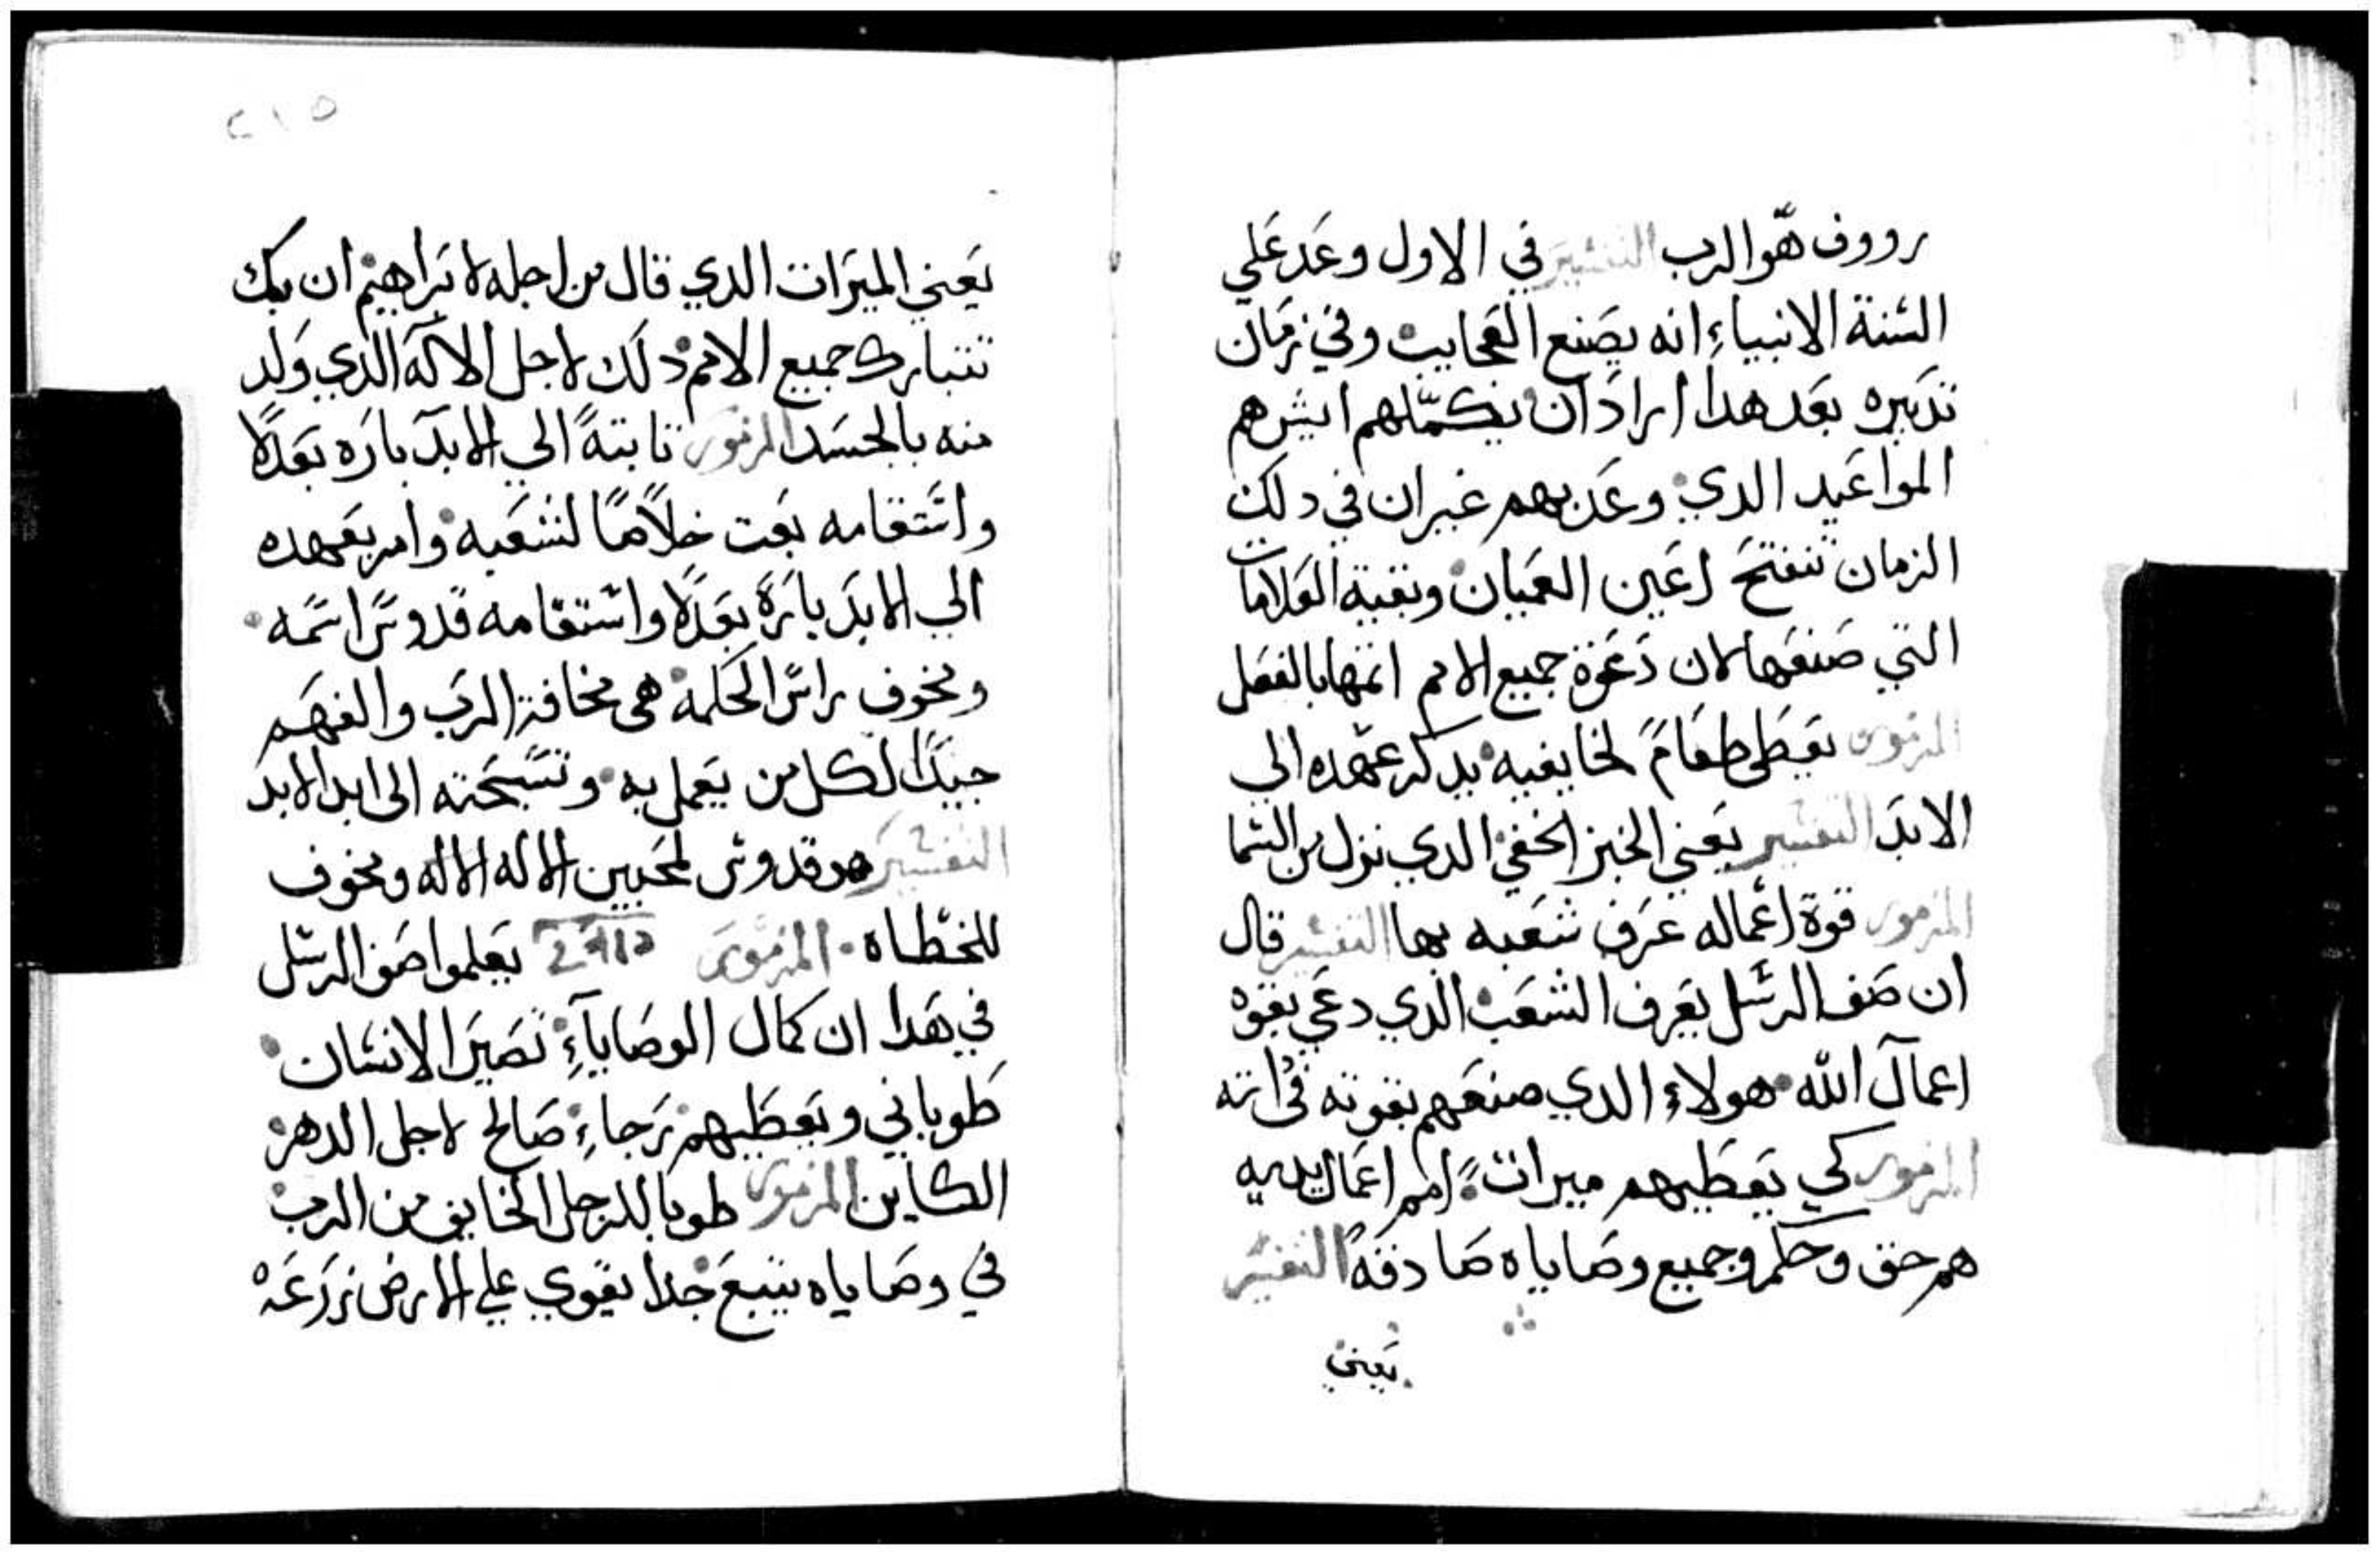 رووف هو الرب التفسير في الاول وعد علي
السنة الانبياء انه يصنع العجايب وفي زمان
تدبيره بعد هدا اراد ان يكملهم ايش هم
المواعيد الدي وعد بهم غير ان في دلك
الزمان تنفتح اعين العميان وبقية العلامات
التي صنعها لان دعوة جميع الامم اتمها بالفعل
المزمور يعطي طعام لخايفيه يدكر عهده الي
الابد التفسير يعني الخبز الخفي الدي نزل من السما
المزمور قوة اعماله عرف شعبه بها التفسير قال
ان صف الرسل يعرف الشعب الدي دعي بقوه
اعمال الله هولاء الدي صنعهم بقوته في اته
المزمور كي يعطيهم ميرات امم اعمال يديه
هم حق وحكم وجميع وصاياه صادقة التفسير
يعني
٢١٥
يعني الميرات الدي قال من اجله لابراهيم ان بك
تتبارك جميع الامم دلك لاجل الاله الدي ولد
منه بالجسد المزمور تابتة الي الابد باره بعدلا
واستقامه بعت خلاصا لشعبه وامر بعهده
الي الابد بارة بعدلا واستقامه قدوس اسمه
ومخوف راس الحكمه هى مخافة الرب والفهم
جيدا لكل من يعمل به وتسبحته الى ابد الابد
التفسير هو قدوس لمحبين الاله الاله ومخوف
للخطاه المزمور يعلموا صف الرسل
في هدا ان كمال الوصاياء تصير الانسان
طوباني وتعطيهم رجاء صالح لاجل الدهر
الكاين المزمور طوبا للرجل الخايف من الرب
في وصاياه يتبع جدا يقوي علي الارض زرعه